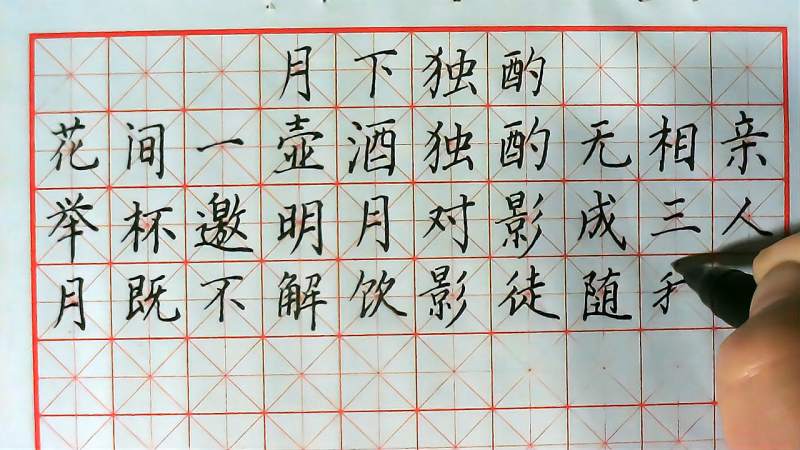 月下独酌
花间一壶酒独酌无相亲
举杯邀明月对影成三人
月既不解饮影徒随